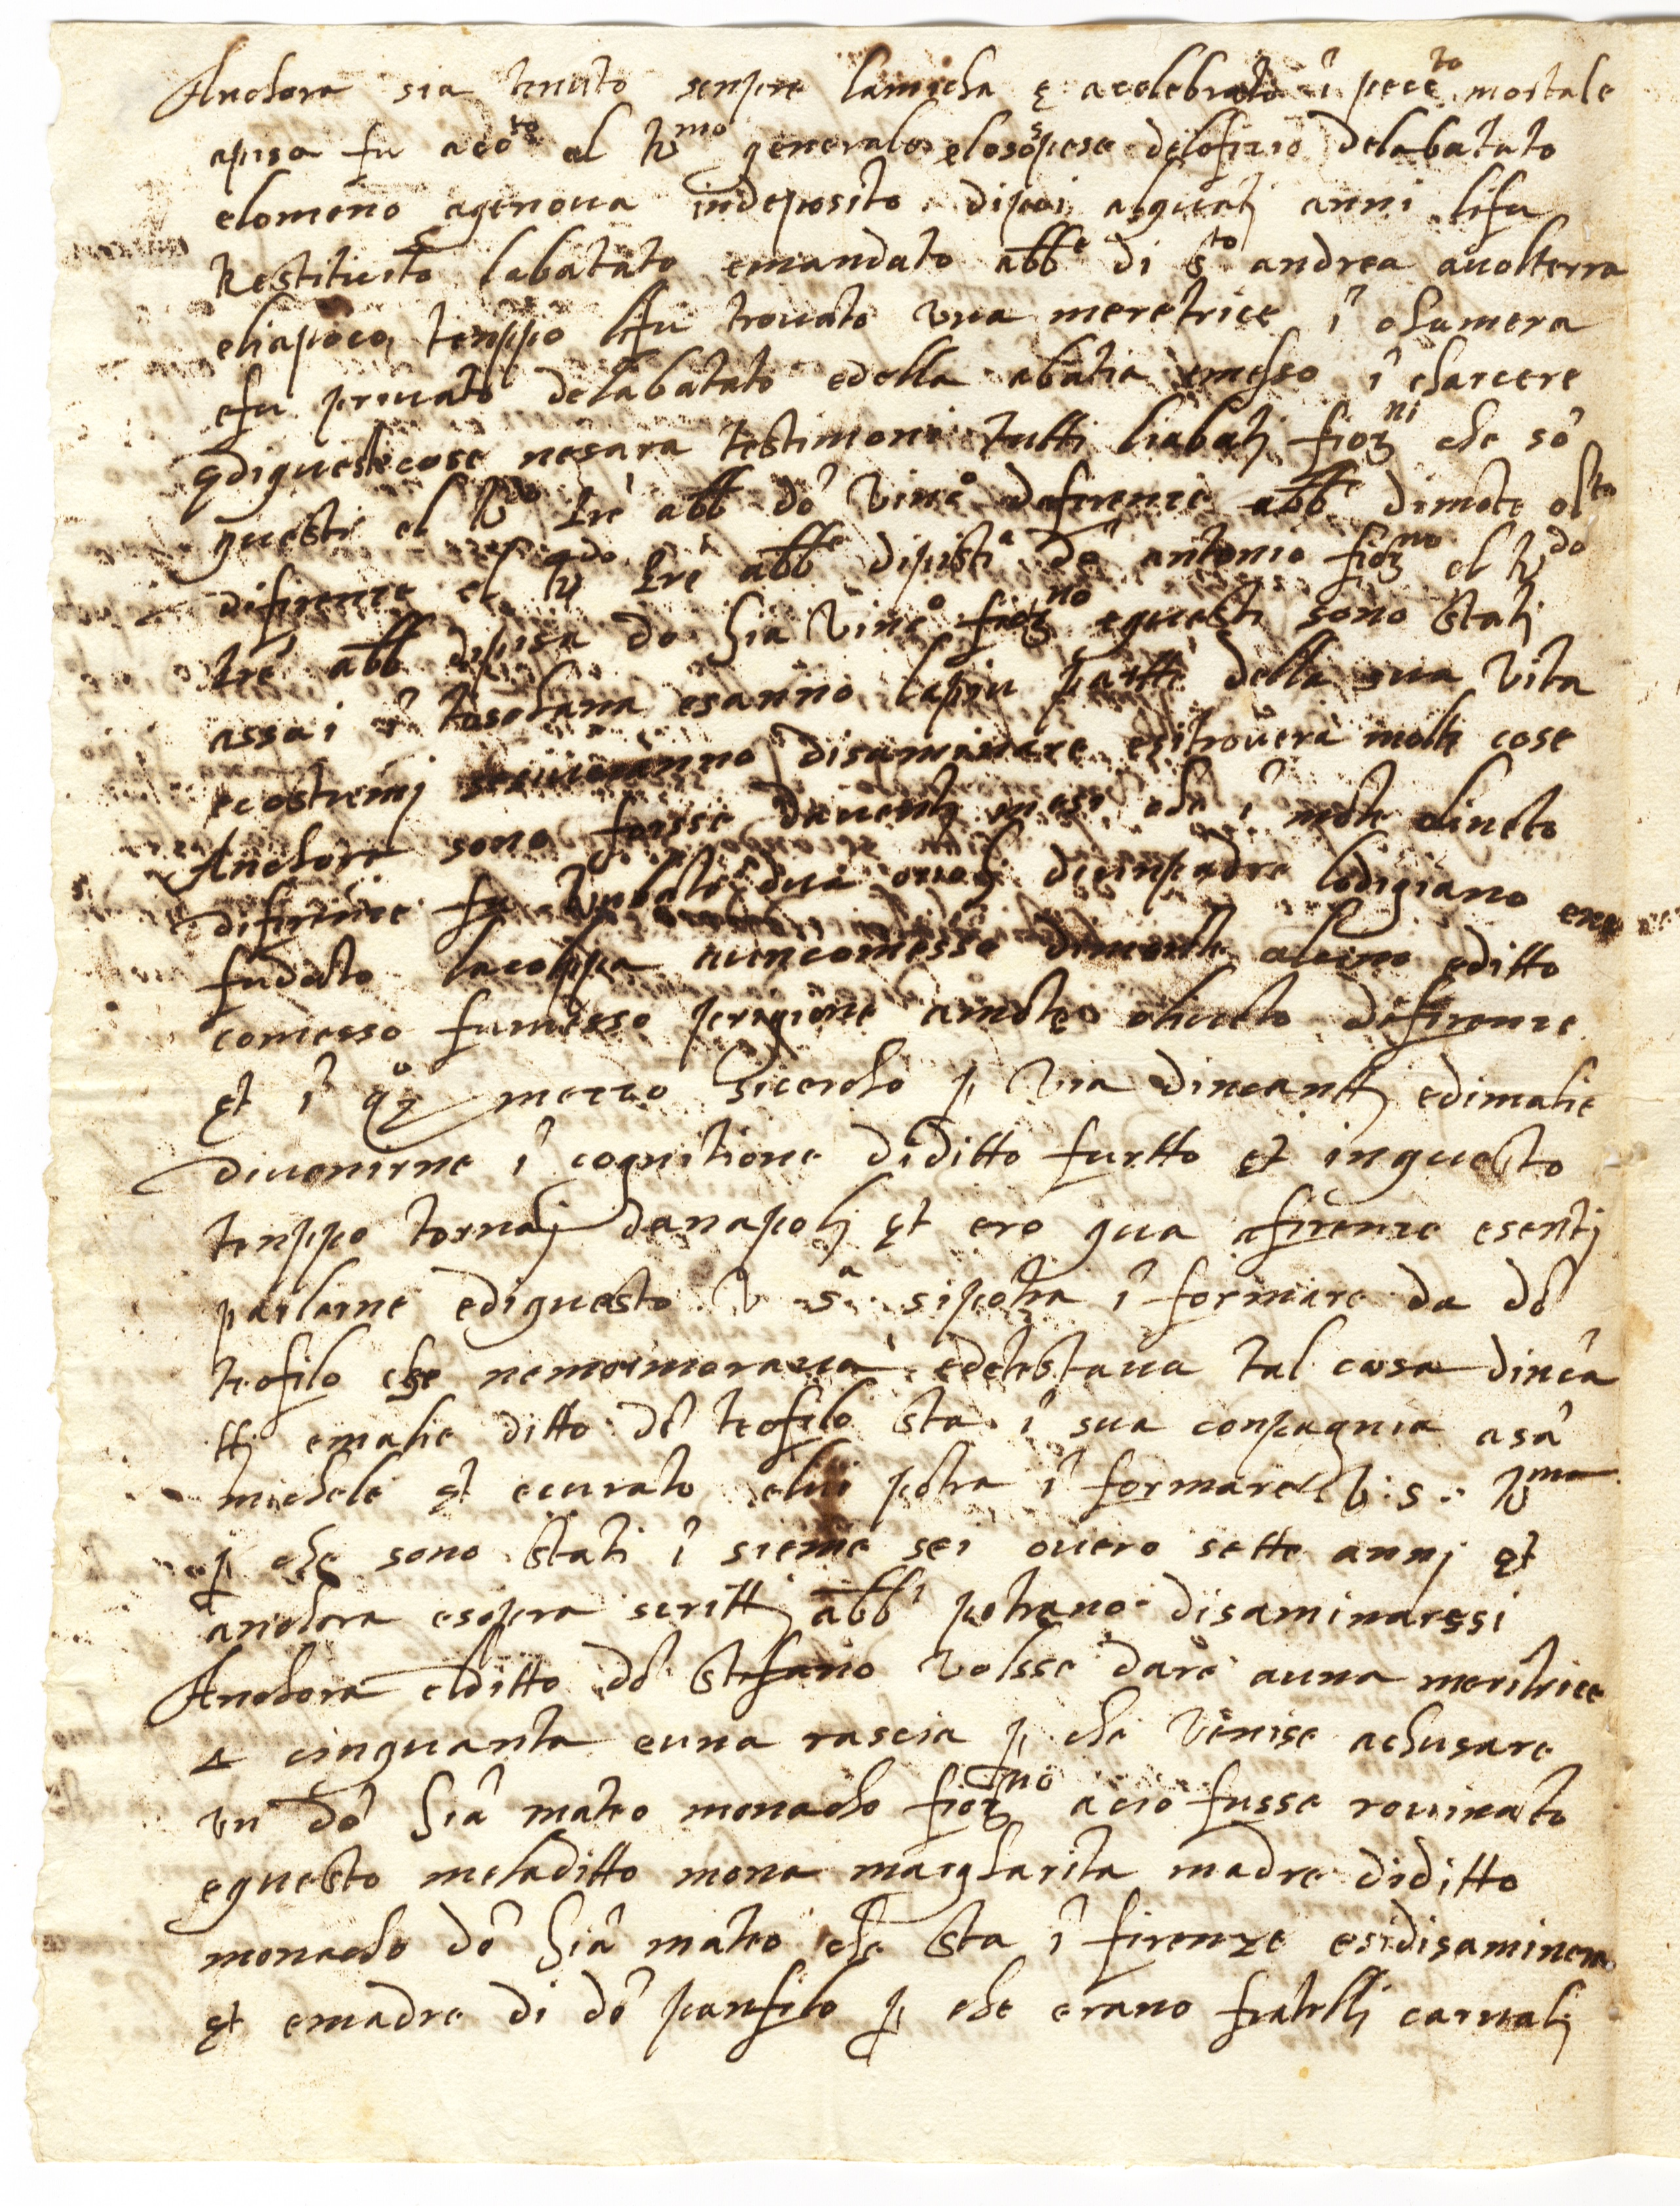 Anchora sia tenuto senpre lamicha et acelebrato î pecc.to mortale
apisa fu aco.to al R.mo generale elosospese delofizio delabatato
elomeno agenova indeposito dipoi alquāti anni lifu
Restituito labatato emandato abb.e di s.to andrea avolterra
eliapoco tenppo lifu trovato una meretrice î chamera
efu privato delabatato edella abatia emesso î charcere
ediqueste cose nesara testimone tutti liabati fior.ni che sō
questi el R.do pre abb dō Vinc.o dafirenze abb.e dimōte ol.to
difirenze el R.do pre abb.e dipist.a dō antonio fior.no el R.do
pre abb dipisa dō Gia Vinc.o fior.no equesti sono stati
assai î toschana esanno lapiu partte della sua Vita
ecostretti disaminare esitrovera molte cose
Anchora sono forsse daventi mesi che î mōte oliveto
difirenze fu Rubato dua diunpadre lodigiano
fudato lacolppa editto
comesso fumesso prigione amōte oliveto difirenze
et î q.o mezzo Sicercho p via dincantti edimalie
divenirne î cognitione diditto furtto et inquesto
tenppo tornaj danapolj et ero qua afirenze esentj
parlarne ediquesto V s.a sipotra î formare da dō
teofilo che nemormorava edetestava tal cosa dincā
tti emalie ditto dō teofilo sta î sua conpagnia asā
michele et ecurato elui potra î formare V: s: R.ma
p che sono stati î sieme sei overo sette annj et
anchora esopra scritti abb.i potrano disaminaresi
Anchora elditto dō stefano volsse dare auna meritrice
△ cinquanta euna rascia p che venise achusare
un dō Giā mateo monacho fior.no acio fusse rovinato
equesto meladitto mona margharita madre diditto
monacho dō Giā mateo che sta î firenze esidisaminera
et emadre di dō panfilo p che erano fratellj carnalj